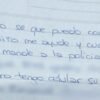 o se que puedo con
itio me ayude y cu
mande a la policia
ro tengo adular se